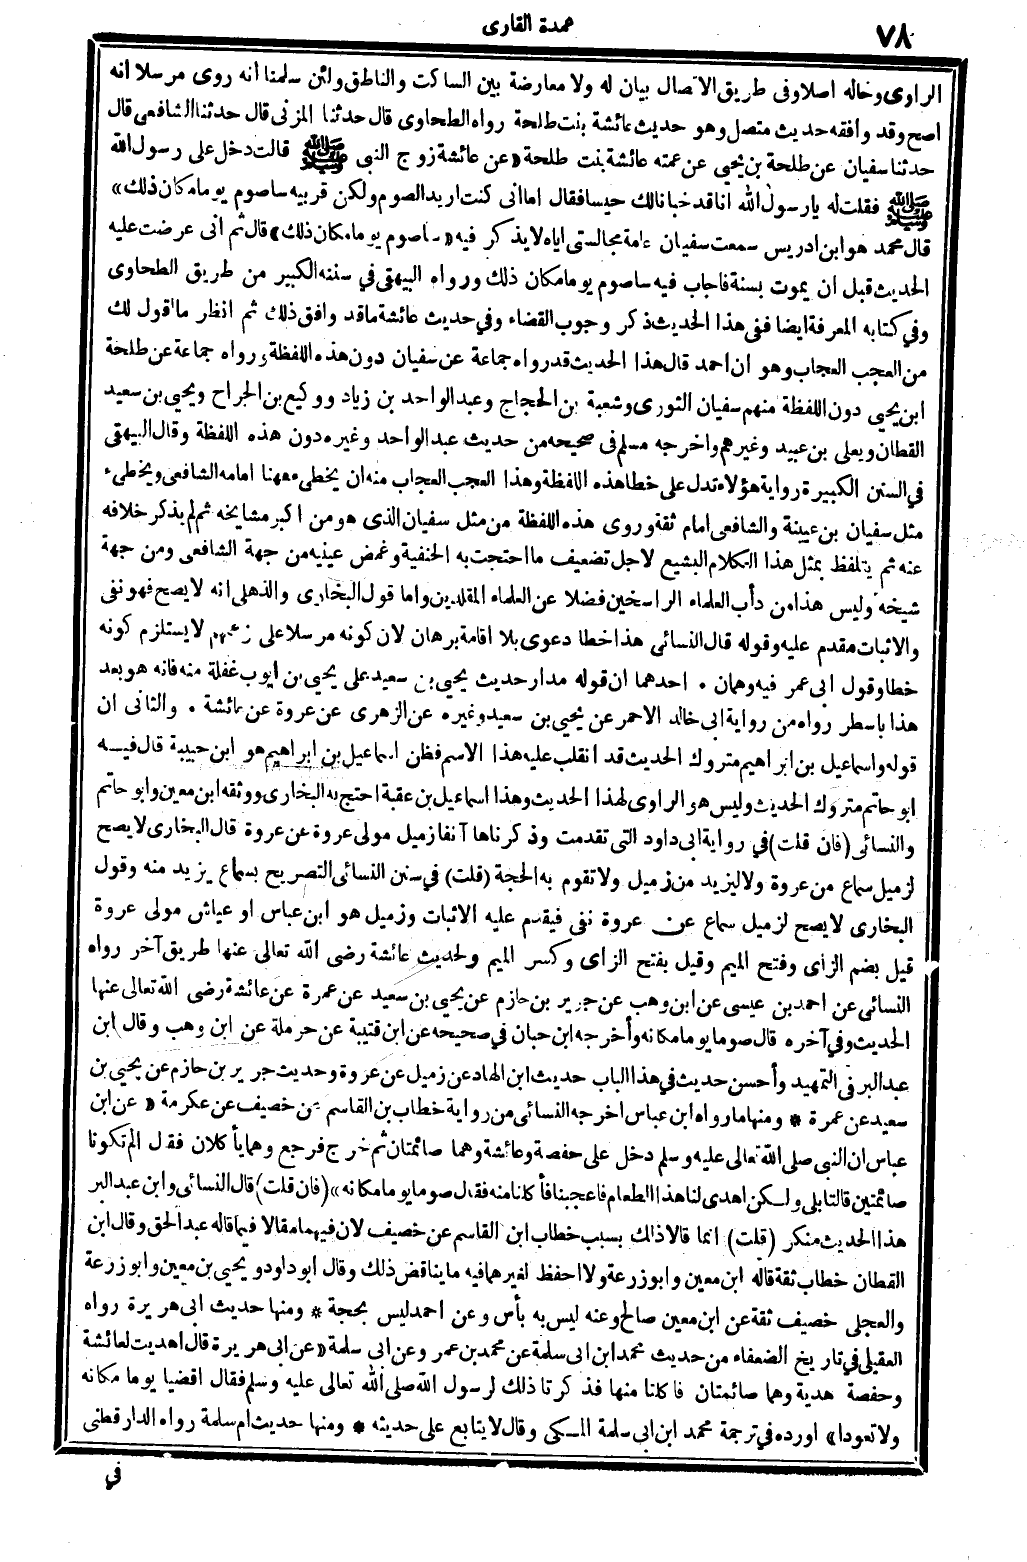 ٧٨
عمدة القارى
الراوى وخاله اصلا وفى طريق الاتصال بيان له ولا معارضة بين الساكت والناطق ولئن سلمنا أنه روى مرسلا انه
اصح وقد وافقه حديث متصل وهو حديث عائشة بنت طلحة رواه الطحاوى قال حدثنا المزنى قال حدثنا الشافعى قال
حدثنا سفيان عن طلحة بن يحيى عن عمته عائشة بنت طلحة «عن عائشة زوج النبى ﷺ قالت دخل على رسول الله
ﷺ فقلت له يا رسول الله انا قد خبانا لك حيسا فقال اما انى كنت اريد الصوم ولكن قربيه ساصوم يوما مكان ذلك»
قال محمد هو ابن ادريس سمعت سفيان عامة مجالستى اياه لا يذكر فيه «ساصوم يوما مكان ذلك» قال ثم أنى عرضت عليه
الحديث قبل ان يموت بسنة فاجاب فيه ساصوم يوما مكان ذلك ورواه البيهقى في سننه الكبير من طريق الطحاوى
وفي كتابه المعرفة ايضا ففى هذا الحديث ذكر وجوب القضاء وفي حديث عائشة ما قد وافق ذلك ثم انظر ما اقول لك
من العجب العجاب وهو ان احمد قال هذا الحديث قد رواه جماعة عن سفيان دون هذه اللفظة ورواه جماعة عن طلحة
ابن يحيى دون اللفظة منهم سفيان الثورى وشعبة بن الحجاج وعبد الواحد بن زياد ووكيع بن الجراح ويحيى بن سعيد
القطان ويعلى بن عبيد وغيرهم واخرجه مسلم فى صحيحه من حديث عبد الواحد وغيره دون هذه اللفظة وقال البيهقى
في السنن الكبيرة رواية هؤلاء تدل على خطا هذه اللفظة وهذا العجب العجاب منه ان يخطىء ههنا امامه الشافعى ويخطىء
مثل سفيان بن عيينة والشافعى امام ثقة وروى هذه اللفظة من مثل سفيان الذى هو من اكبر مشايخه ثم لم يذكر خلافه
عنه ثم يتلفظ بمثل هذا الكلام البشيع لاجل تضعيف ما احتجت به الحنفية وغمض عينيه من جهة الشافعى ومن جهة
شيخه وليس هذا من دأب العلماء الراسخين فضلا عن العلماء المقلدين واما قول البخارى والذهلى انه لا يصح فهو نفى
والاثبات مقدم عليه وقوله قال النسائى هذا خطا دعوى بلا اقامة برهان لان كونه مرسلا على زعمهم لا يستلزم كونه
خطا وقول ابى عمر فيه وهمان . احدهما ان قوله مدار حديث يحيى بن سعيد على يحيى بن ايوب غفلة منه فانه هو بعد
هذا باسطر رواه من رواية ابى خالد الاحمر عن يحيى بن سعيد وغيره عن الزهرى عن عروة عن عائشة . والثانى ان
قوله واسماعيل بن ابراهيم متروك الحديث قد انقلب عليه هذا الاسم فظن اسماعيل بن ابراهيم هو ابن حبيبة قال فيه
ابو حاتم متروك الحديث وليس هو الراوى لهذا الحديث وهذا اسماعيل بن عقبة احتج به البخارى ووثقه ابن معين وابو حاتم
والنسائى (فان قلت) في رواية ابى داود التى تقدمت وذكرناها آنفا زميل مولى عروة عن عروة قال البخارى لا يصح
لزميل سماع من عروة ولا ليزيد من زميل ولا تقوم به الحجة (قلت) في سنن النسائى التصريح بسماع يزيد منه وقول
البخارى لا يصح لزميل سماع عن عروة نفى فيقدم عليه الاثبات وزميل هو ابن عباس او عياش مولى عروة
قيل بضم الزاى وفتح الميم وقيل بفتح الزاى وكسر الميم ولحديث عائشة رضى الله تعالى عنها طريق آخر رواه
النسائى عن احمد بن عيسى عن ابن وهب عن جرير بن حازم عن يحيى بن سعيد عن عمرة عن عائشة رضى الله تعالى عنها
الحديث وفي آخره قال صوما يوما مكانه وأخرجه ابن حبان في صحيحه عن ابن قتيبة عن حرملة عن ابن وهب وقال ابن
عبد البر فى التمهيد وأحسن حديث في هذا الباب حديث ابن الهاد عن زميل عن عروة وحديث جرير بن حازم عن يحيى بن
سعيد عن عمرة * ومنها ما رواه ابن عباس اخرجه النسائى من رواية خطاب بن القاسم عن خصيف عن عكرمة «عن ابن
عباس ان النبى صلى الله تعالى عليه وسلم دخل على حفصة وعائشة وهما صائمتان ثم خرج فرجع وهما يأكلان فقال الم تكونا
صائمتين قالتا بلى ولكن اهدى لنا هذا الطعام فاعجبنا فأكلنا منه فقال صوما يوما مكانه» (فان قلت) قال النسائى وابن عبد البر
هذا الحديث منكر (قلت) انما قالا ذلك بسبب خطاب ابن القاسم عن خصيف لان فيهما مقالا فيما قاله عبد الحق وقال ابن
القطان خطاب ثقة قاله ابن معين وابو زرعة ولا احفظ لغيرهما فيه ما يناقض ذلك وقال ابو داود ويحيى بن معين وابو زرعة
والعجلى خصيف ثقة عن ابن معين صالح وعنه ليس به بأس وعن احمد ليس بحجة * ومنها حديث ابى هريرة رواه
العقيلى في تاريخ الضعفاء من حديث محمد ابن ابى سلمة عن محمد بن عمر وعن ابى سلمة «عن ابى هريرة قال اهديت لعائشة
وحفصة هدية وهما صائمتان فاكلنا منها فذكرتا ذلك لرسول الله صلى الله تعالى عليه وسلم فقال اقضيا يوما مكانه
ولا تعودا» اورده في ترجمة محمد ابن ابى سلمة المكى وقال لا يتابع على حديثه * ومنها حديث ام سلمة رواه الدار قطنى
في